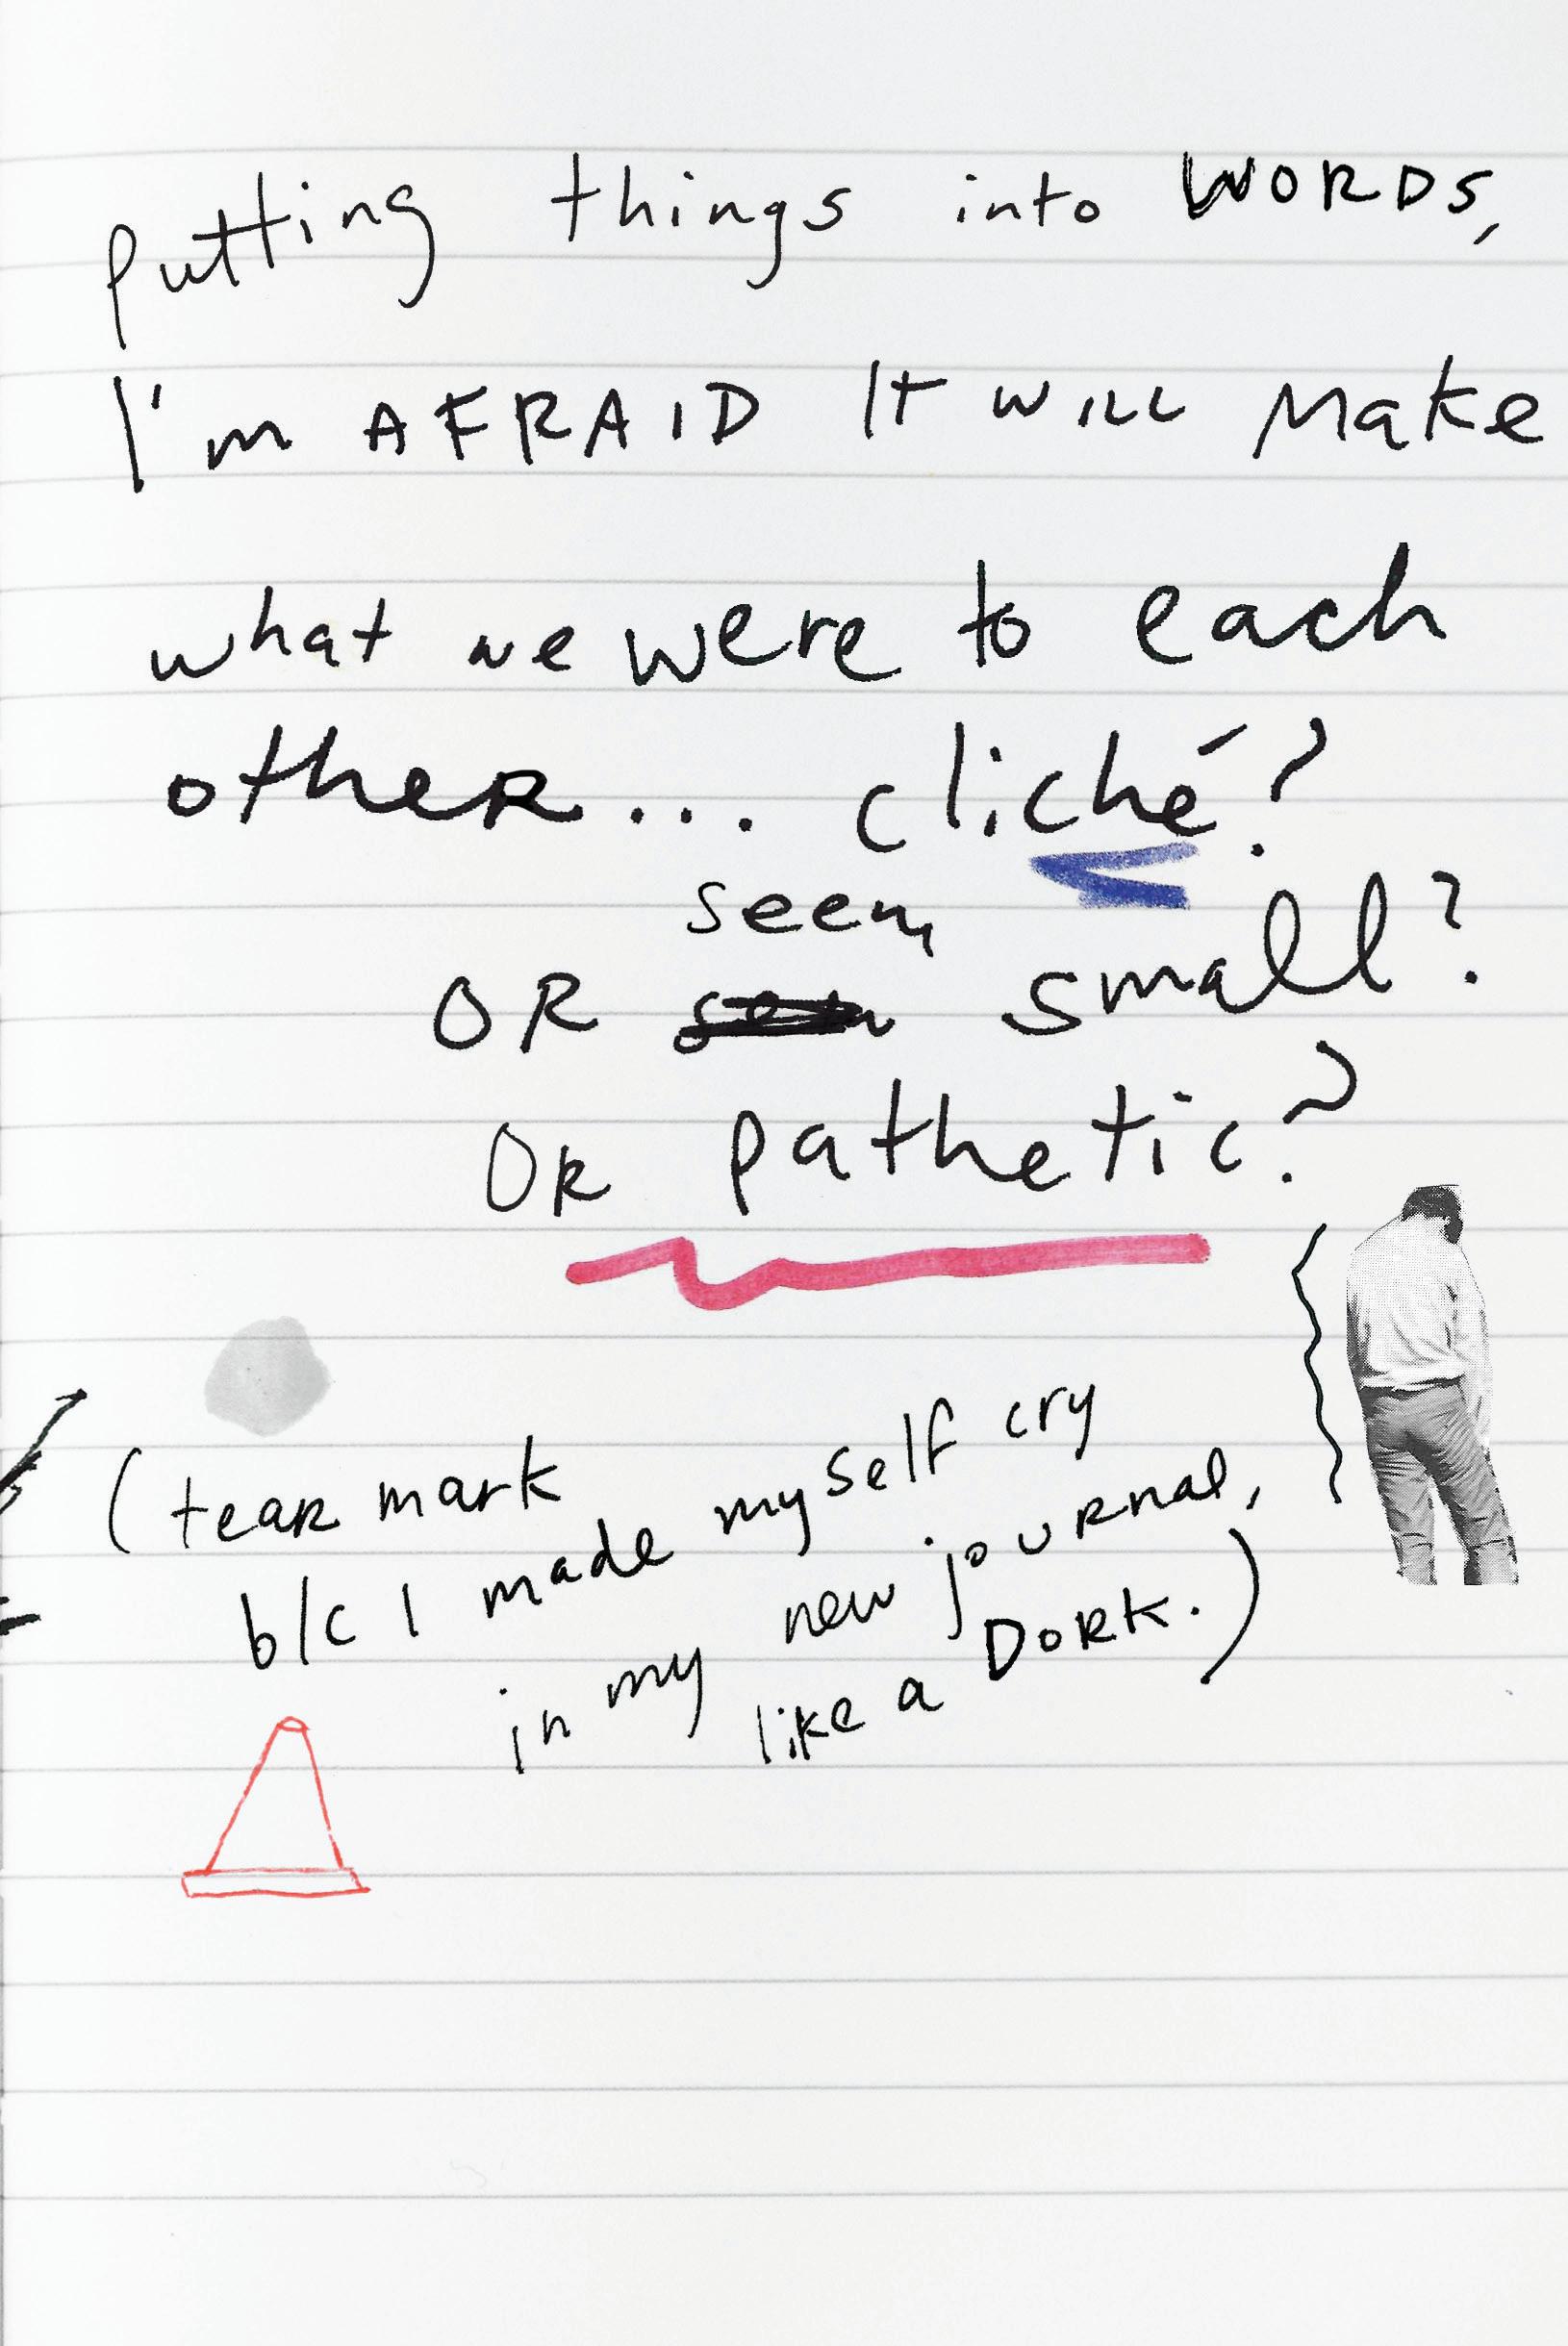 putting things into WORDS,
I'm AFRAID It WILL Make
what we were to each
other... cliché?
seem
OR small?
OR pathetic?
(tear mark
b/c I made myself cry
in my new journal,
like a DORK.)